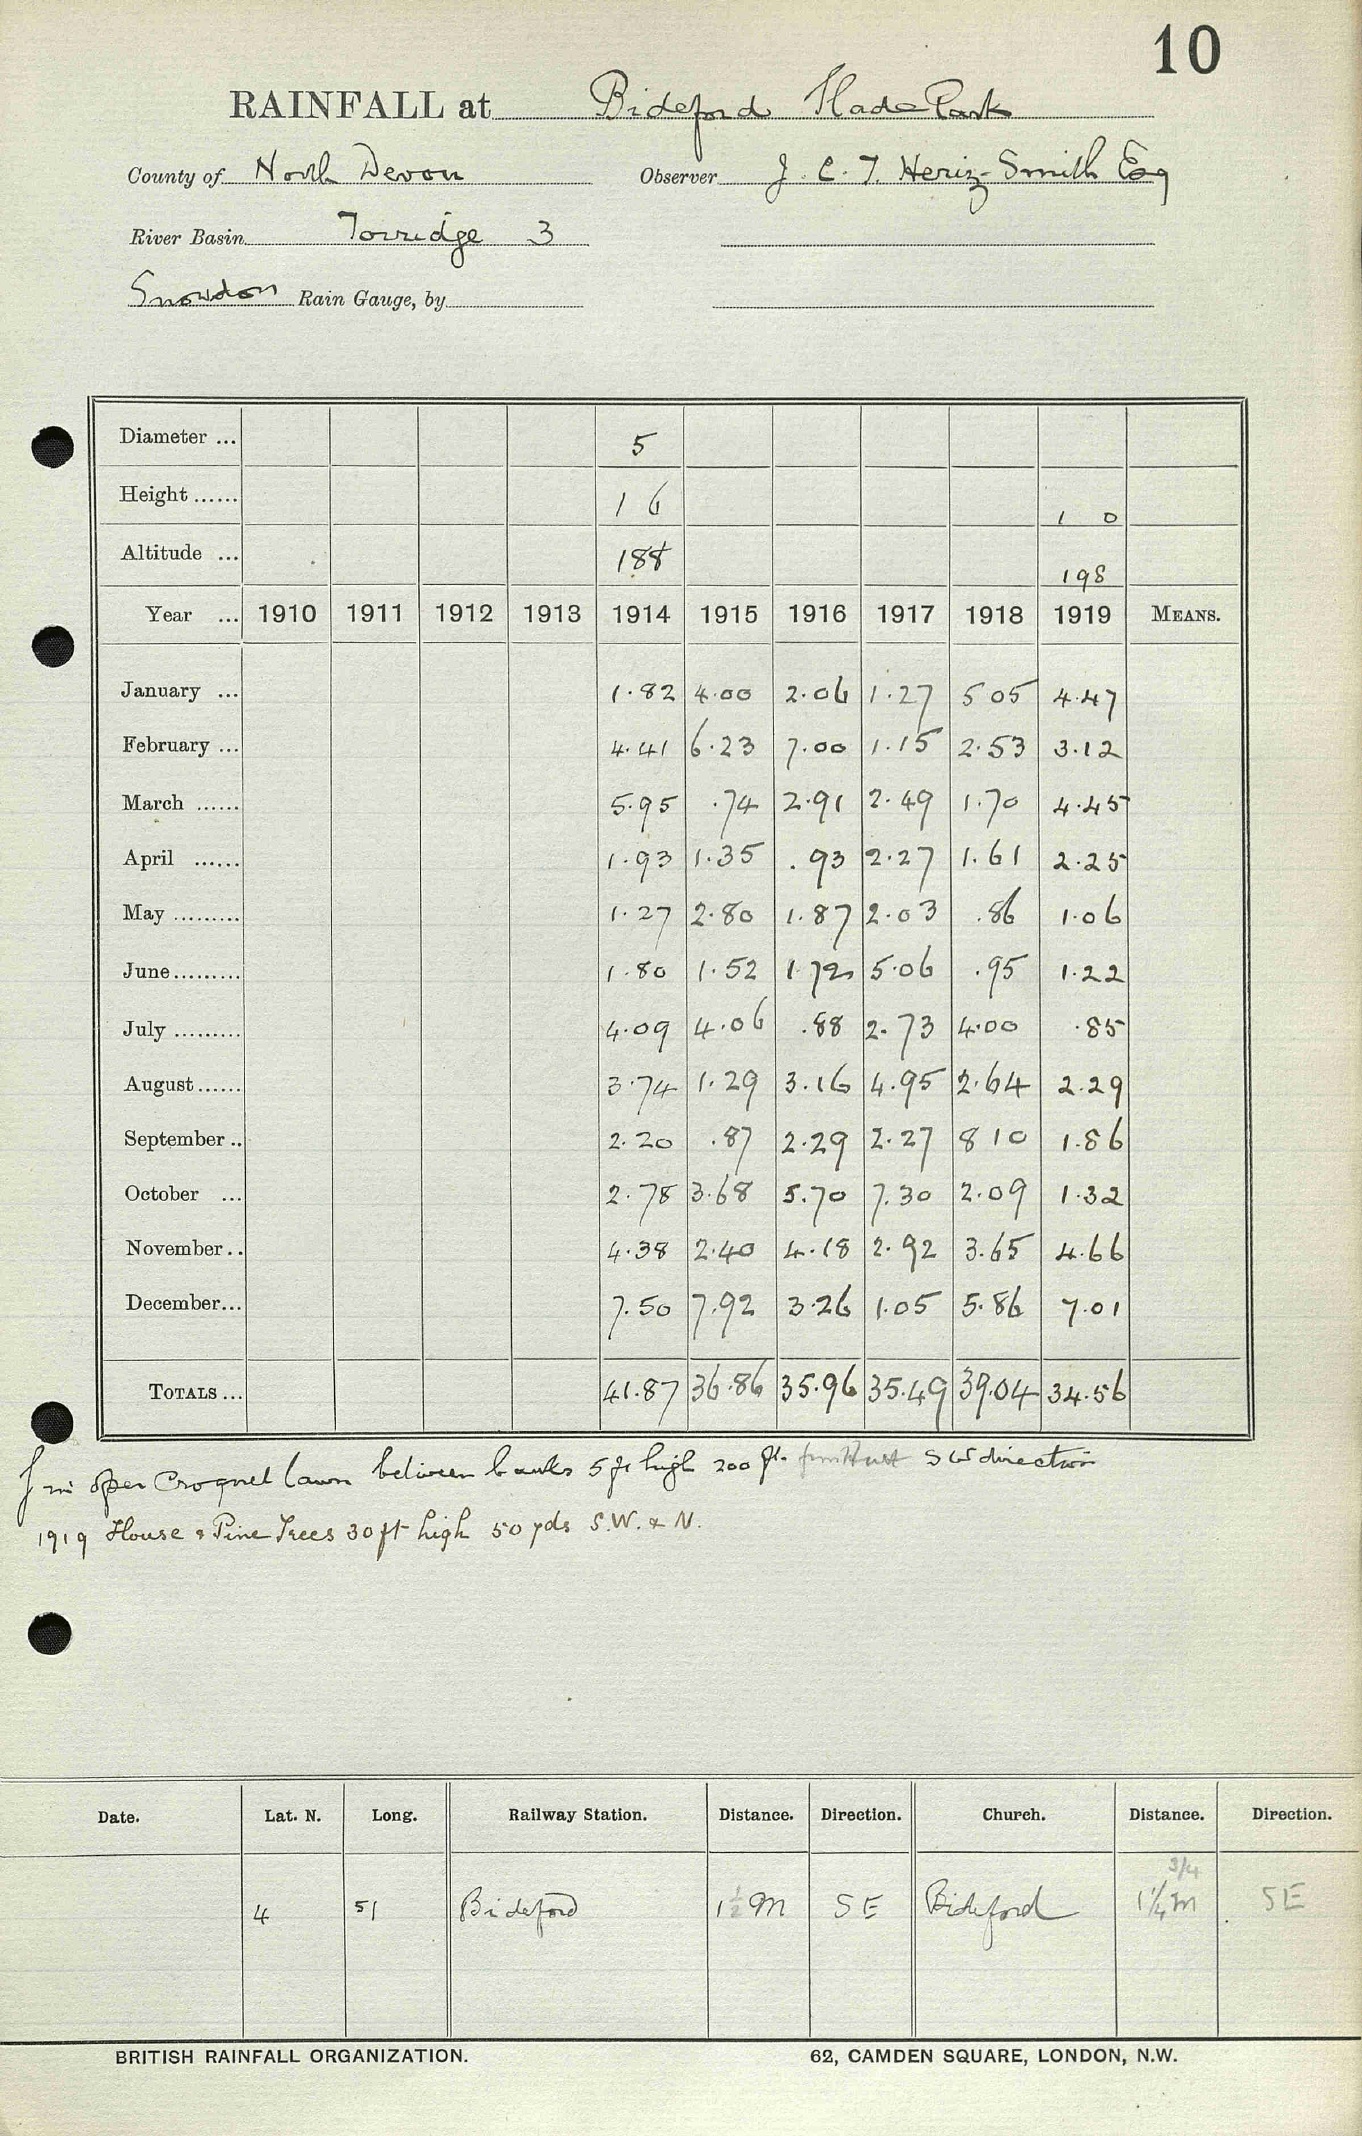 10
RAINFALL at Bideford Slade Park
County of North Devon Observer J. C. T. Heriz-Smith Esq
River Basin Torridge 3
Snowdon Rain Gauge, by
Diameter ... 5
Height ...... 1 6 1 0
Altitude ... 188 198
Year ... 1910 1911 1912 1913 1914 1915 1916 1917 1918 1919 MEANS.
January ... 1.82 4.00 2.06 1.27 5 05 4.47
February ... 4.41 6.23 7.00 1.15 2.53 3.12
March ...... 5.95 .74 2.91 2.49 1.70 4.45
April ...... 1.93 1.35 .93 2.27 1.61 2.25
May ......... 1.27 2.80 1.87 2.03 .86 1.06
June......... 1.80 1.52 1.72 5.06 .95 1.22
July ......... 4.09 4.06 .88 2.73 4.00 .85
August...... 3.74 1.29 3.16 4.95 2.64 2.29
September .. 2.20 .87 2.29 2.27 8 10 1.86
October ... 2.78 3.68 5.70 7.30 2.09 1.32
November.. 4.38 2.40 4.18 2.92 3.65 4.66
December... 7.50 7.92 3.26 1.05 5.86 7.01
TOTALS ... 41.87 36.86 35.96 35.49 39.04 34.56
in open Croquet lawn between banks 5 ft high 200 ft. S W direction
1919 House & Pine Trees 30 ft high 50 yds S.W. & N.
Date. Lat. N. Long. Railway Station. Distance. Direction. Church. Distance. Direction.
3/4
4 51 Bideford 1 1/2 M SE Bideford 1 1/4 m SE
BRITISH RAINFALL ORGANIZATION. 62, CAMDEN SQUARE, LONDON, N.W.